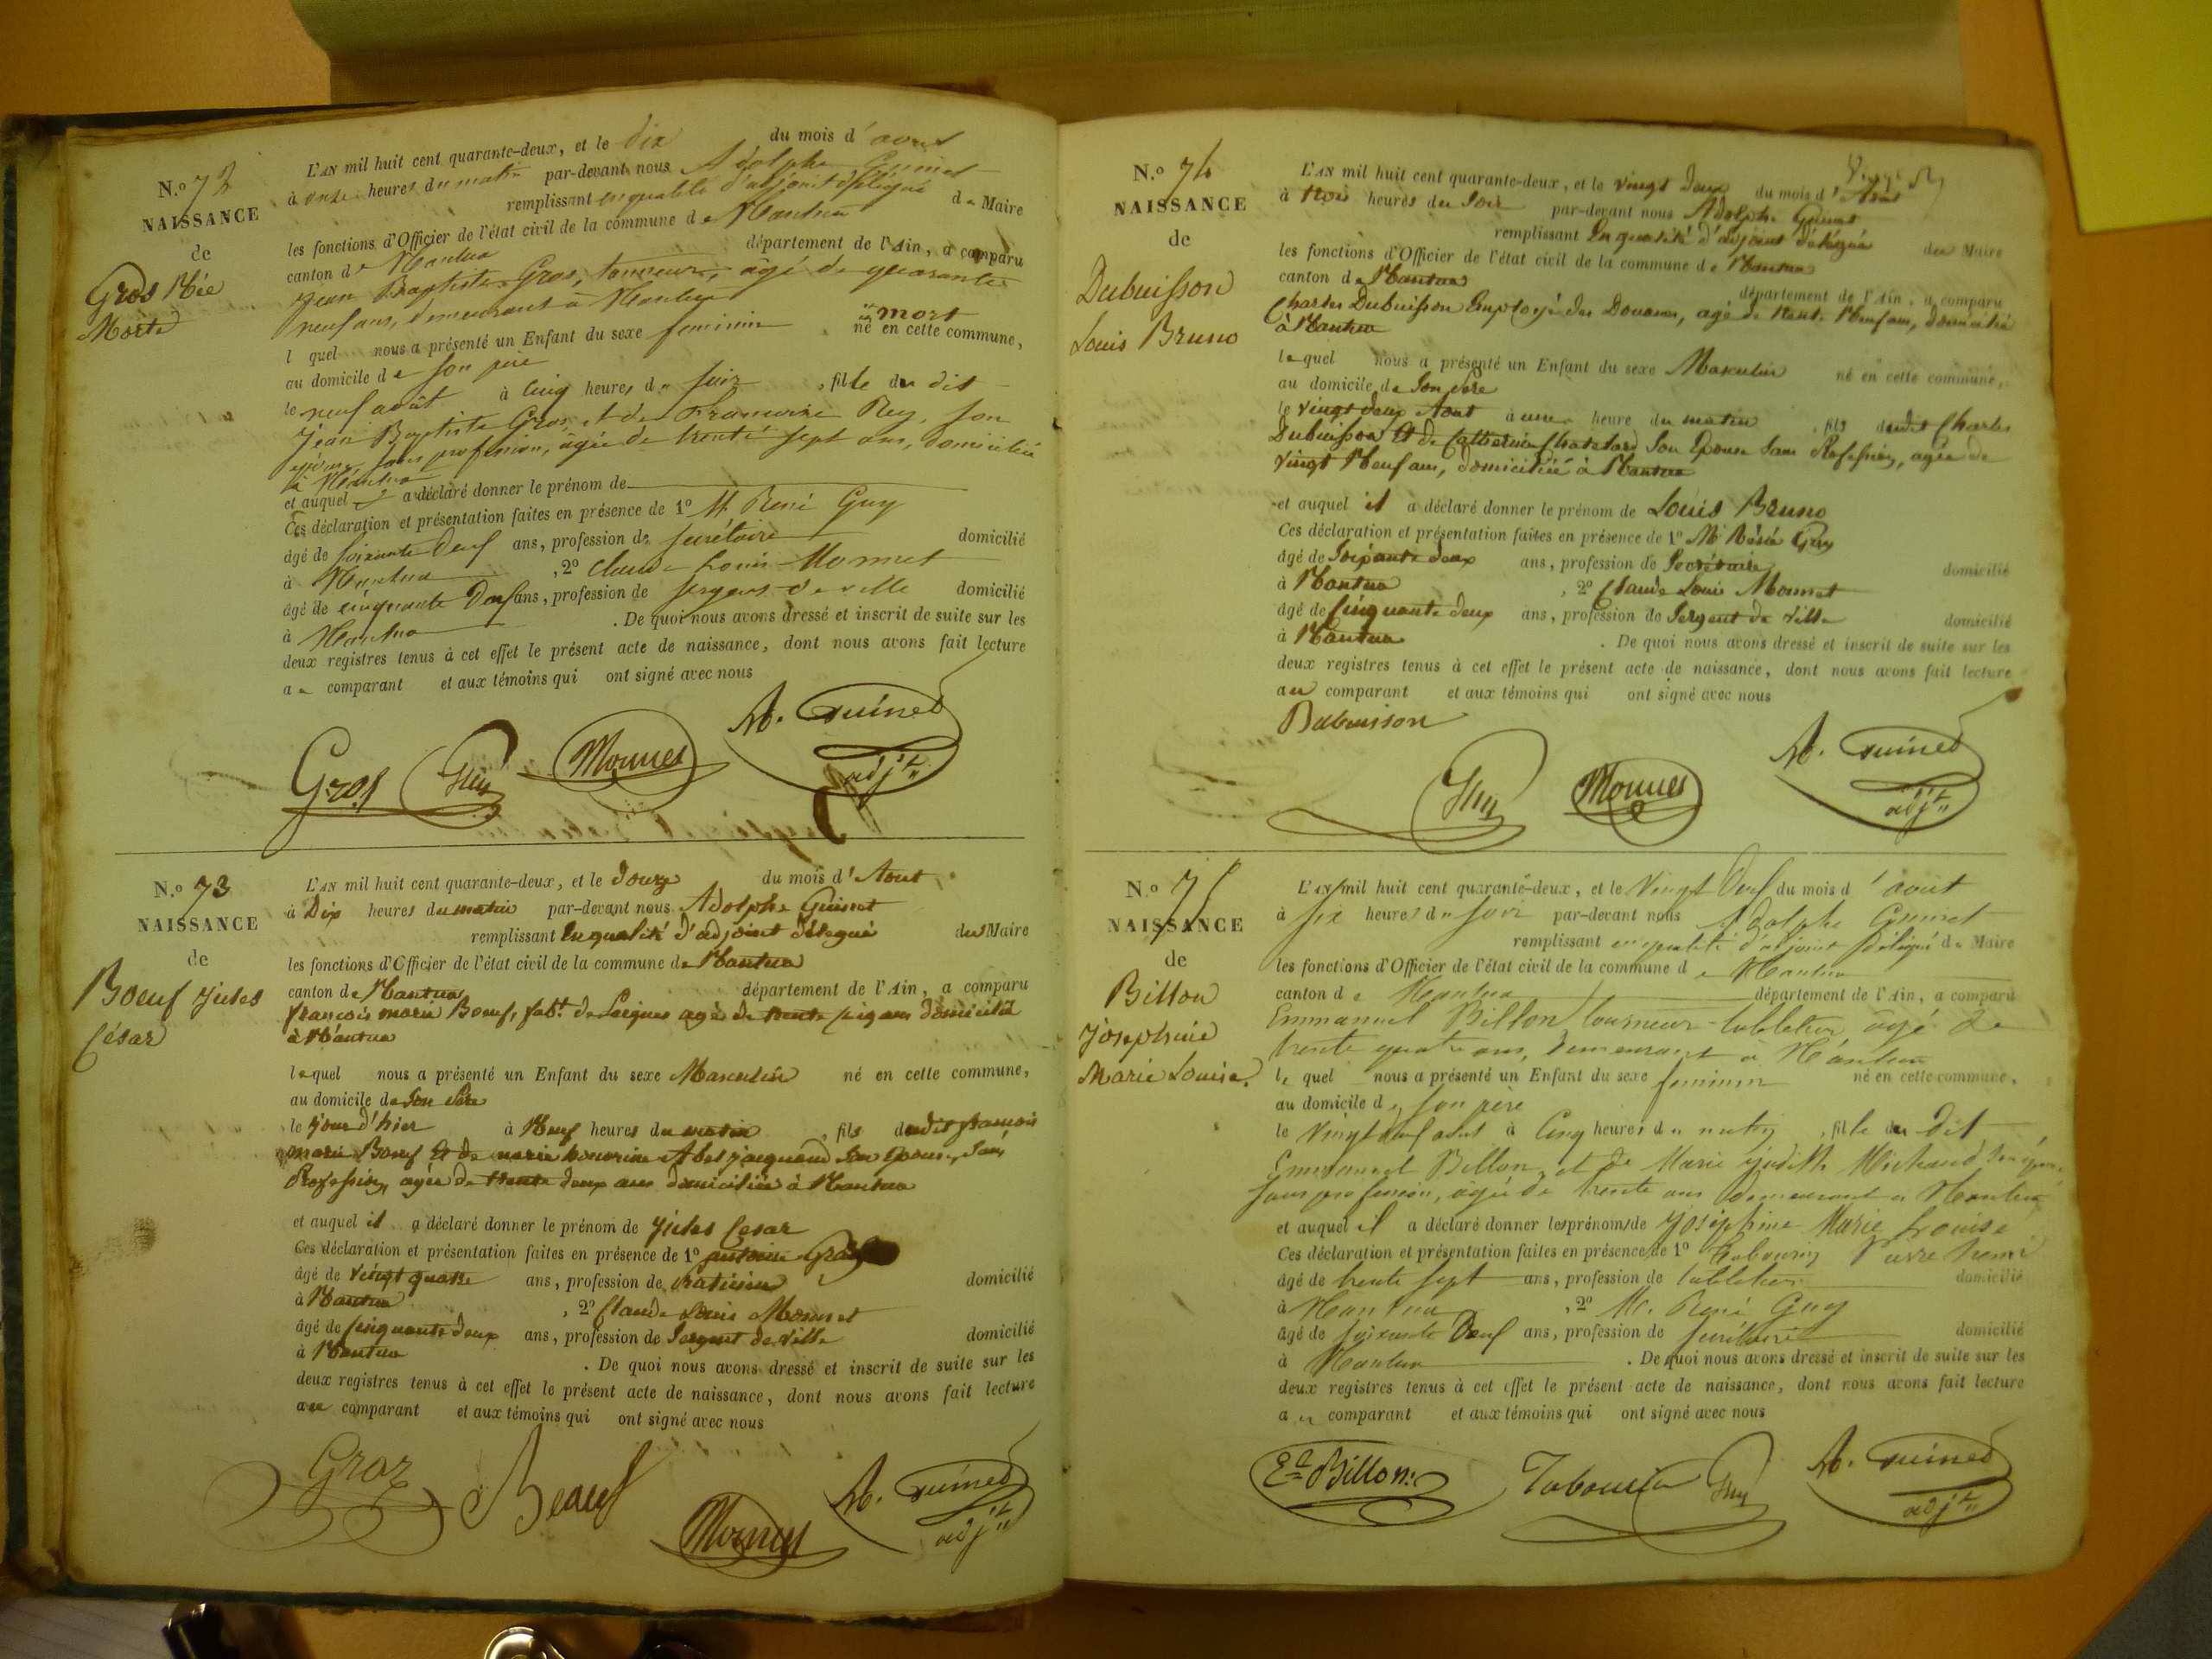 N.o 72
NAISSANCE
de
Gros Née
Morte
L'AN mil huit cent quarante-deux, et le dix du mois d'août
à onze heures du matin par-devant nous Adolphe Guinet
remplissant en qualité d'adjoint délégué du Maire
les fonctions d'Officier de l'état civil de la commune de Nantua
canton de Nantua département de l'Ain, a comparu
Jean Baptiste Gros, tourneur, âgé de quarante
neuf ans, demeurant à Nantua
l quel nous a présenté un Enfant du sexe feminin mort né en cette commune,
au domicile de son père
le neuf août à cinq heures du soir, fille du dit
Jean Baptiste Gros et de Francoise Rey, son
épouse sans profession, âgée de trente sept ans, domiciliée
à Nantua
et auquel a déclaré donner le prénom de
Ces déclaration et présentation faites en présence de 1o M. René Guy
âgé de soixante deux ans, profession de secrétaire domicilié
à Nantua, 2o Claude Louis Monnet
âgé de cinquante deux ans, profession de sergent de ville domicilié
à Nantua. De quoi nous avons dressé et inscrit de suite sur les
deux registres tenus à cet effet le présent acte de naissance, dont nous avons fait lecture
au comparant et aux témoins qui ont signé avec nous
Gros Guy Monnet A. Guinet adjt
N.o 73
NAISSANCE
de
Boeuf Jules
César
L'AN mil huit cent quarante-deux, et le douze du mois d'Aout
à Dix heures du matin par-devant nous Adolphe Guinet
remplissant En qualité d'adjoint délégué du Maire
les fonctions d'Officier de l'état civil de la commune de Nantua
canton de Nantua département de l'Ain, a comparu
françois marie Boeuf, fabt. de Peignes agé de trente six ans domicilié
à Nantua
lequel nous a présenté un Enfant du sexe Masculin né en cette commune,
au domicile de Son Père
le jour d'hier à Neuf heures du matin, fils dudit françois
marie Boeuf Et de marie honorine Abel jacquand Son Epouse, Sans
Profession, agée de trente deux ans domiciliée à Nantua
et auquel il a déclaré donner le prénom de Jules Cesar
Ces déclaration et présentation faites en présence de 1o
âgé de vingt quatre ans, profession de Praticien domicilié
à Nantua, 2o Claude Louis Monnet
âgé de Cinquante deux ans, profession de Sergent de Ville domicilié
à Nantua. De quoi nous avons dressé et inscrit de suite sur les
deux registres tenus à cet effet le présent acte de naissance, dont nous avons fait lecture
au comparant et aux témoins qui ont signé avec nous
Groz Boeuf Monnet A. Guinet adjt
N.o 74
NAISSANCE
de
Dubuisson
Louis Bruno
L'AN mil huit cent quarante-deux, et le vingt Deux du mois d'Aout
à trois heures du Soir par-devant nous Adolphe Guinet
remplissant En qualité d'adjoint délégué du Maire
les fonctions d'Officier de l'état civil de la commune de Nantua
canton de Nantua, département de l'Ain, a comparu
Charles Dubuisson Employé des Douanes, agé de trente Neuf ans, domicilié
à Nantua
lequel nous a présenté un Enfant du sexe Masculin né en cette commune,
au domicile de Son père
le vingt deux Aout à une heure du matin, fils dudit Charles
Dubuisson Et de Catherine Chatelard Son Epouse Sans Profession, agée de
vingt Neuf ans, domiciliée à Nantua
et auquel il a déclaré donner le prénom de Louis Bruno
Ces déclaration et présentation faites en présence de 1o Mr Réné Guy
âgé de Soixante deux ans, profession de Secrétaire domicilié
à Nantua, 2o Claude Louis Monnet
âgé de Cinquante deux ans, profession de Sergent de Ville domicilié
à Nantua. De quoi nous avons dressé et inscrit de suite sur les
deux registres tenus à cet effet le présent acte de naissance, dont nous avons fait lecture
au comparant et aux témoins qui ont signé avec nous
Dubuisson
Guy Monnet A. Guinet adjt
N.o 75
NAISSANCE
de
Billon
Josephine
Marie Louise.
L'AN mil huit cent quarante-deux, et le Vingt Deux du mois d'août
à six heures du soir par-devant nous Adolphe Guinet
remplissant en qualité d'adjoint délégué du Maire
les fonctions d'Officier de l'état civil de la commune de Nantua
canton de Nantua département de l'Ain, a comparu
Emmanuel Billon tourneur-tabletier âgé de
trente quatre ans, demeurant à Nantua
le quel nous a présenté un Enfant du sexe feminin né en cette commune,
au domicile de son père
le vingt deux août à Cinq heures du matin, fille du dit
Emmanuel Billon, et de Marie Judith Michaud
sans profession, âgée de trente ans demeurant à Nantua
et auquel il a déclaré donner les prénoms de Joséphine Marie Louise
Ces déclaration et présentation faites en présence de 1o
âgé de trente sept ans, profession de tabletier domicilié
à Nantua, 2o M. René Guy
âgé de soixante Deux ans, profession de secrétaire domicilié
à Nantua. De quoi nous avons dressé et inscrit de suite sur les
deux registres tenus à cet effet le présent acte de naissance, dont nous avons fait lecture
au comparant et aux témoins qui ont signé avec nous
El Billon Tabourin Guy A. Guinet adjt